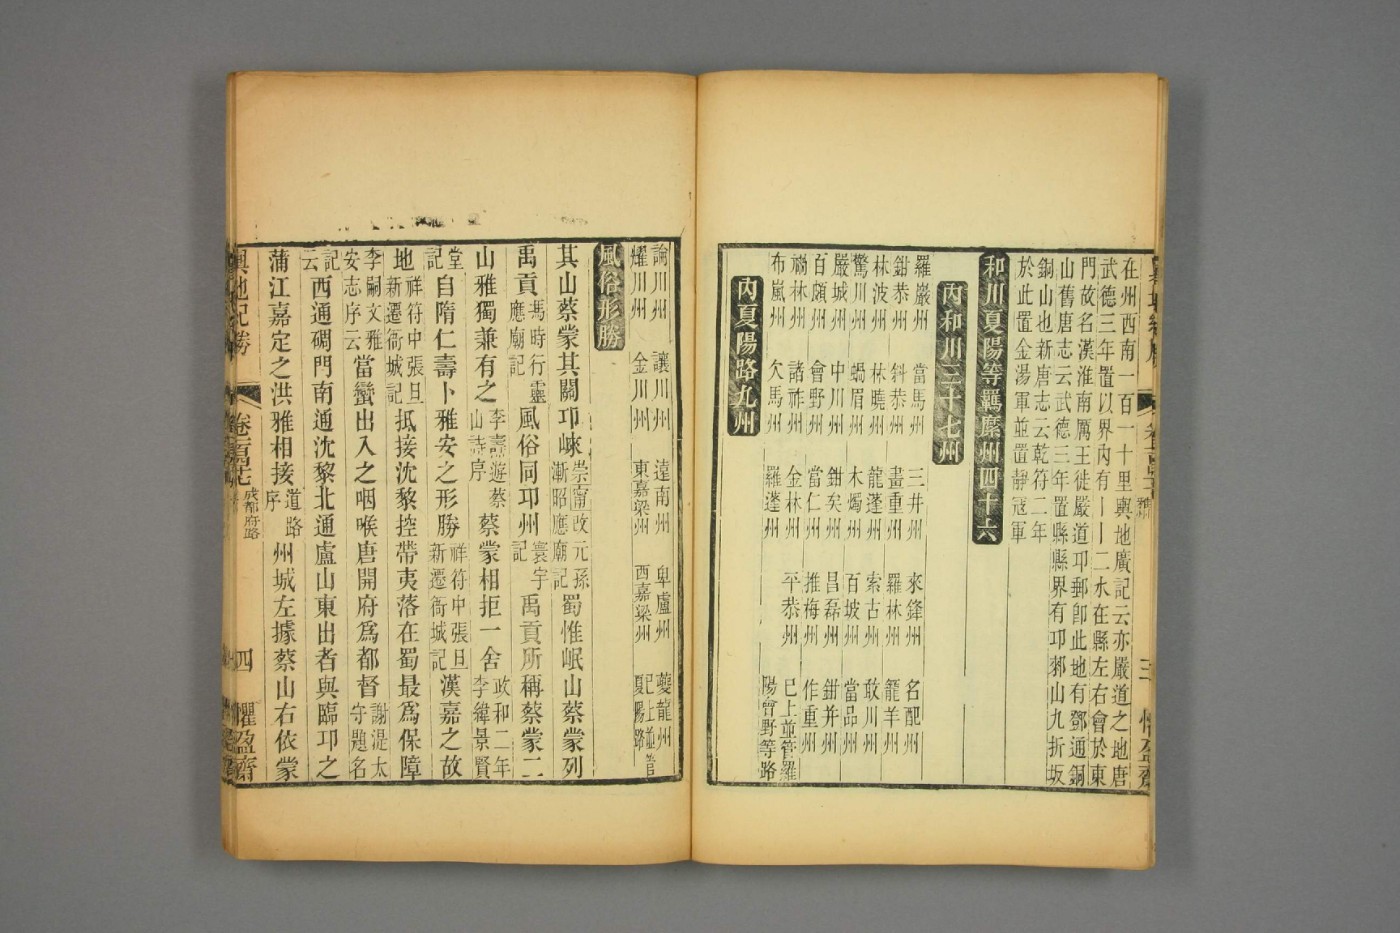 在州西南一百一十里輿地廣記云亦嚴道之地唐
武德三年置以界內有一一二水在縣左右會於東
門故名漢淮南厲王徙嚴道卭郵卽此地有鄧通銅
山舊唐志云武德三年置縣縣界有卭郲山九折坂
銅山也新唐志云乾符二年
於此置金湯軍並置靜寇軍
和川夏陽等羈縻州四十六
內和川三十七州
羅巖州 當馬州 三井州 來鋒州 名配州
鉗恭州 斜恭州 畫重州 羅林州 籠羊州
林波州 林曉州 龍蓬州 索古州 敢川州
驚川州 蝸眉州 木燭州 百坡州 當品州
嚴城州 中川州 鉗矣州 昌磊州 鉗并州
百頗州 會野州 當仁州 推梅州 作重州
禍林州 諸祚州 金林州 平恭州 巳上並管羅
布嵐州 欠馬州 羅蓬州 陽會野等路
內夏陽路九州
論川州 讓川州 遠南州 卑盧州 夔龍州
耀川州 金川州 東嘉梁州 西嘉梁州 巳上並管
夏陽路
風俗形勝
其山蔡蒙其關卭崍崇甯改元孫
漸昭應廟記蜀惟岷山蔡蒙列
禹貢馮時行靈
應廟記風俗同卭州寰宇
記禹貢所稱蔡蒙二
山雅獨兼有之李壽遊蔡
山詩序蔡蒙相拒一舍政和二年
李緯景賢
堂
記自隋仁壽卜雅安之形勝祥符中張旦
新遷衙城記漢嘉之故
地祥符中張旦
新遷衙城記抵接沈黎控帶夷落在蜀最爲保障
李嗣文雅
安志序云當蠻出入之咽喉唐開府爲都督謝湜太
守題名
記
云西通碉門南通沈黎北通盧山東出者與臨卭之
蒲江嘉定之洪雅相接道路
序州城左據蔡山右依蒙
輿地紀勝 卷一百四十七 成都府路 四 懼盈齋